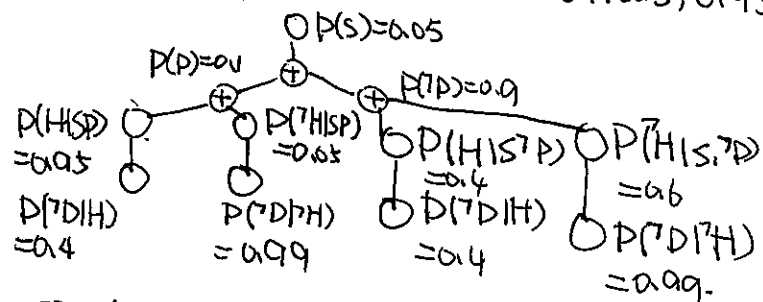 P(S)=0.05
P(P)=0.1
+
+
+
P(¬P)=0.9
P(H|SP)
=0.95
P(¬H|SP)
=0.05
P(H|S¬P)
=0.4
P(¬H|S,¬P)
=0.6
P(¬D|H)
=0.4
P(¬D|¬H)
=0.99
P(¬D|H)
=0.4
P(¬D|¬H)
=0.99.